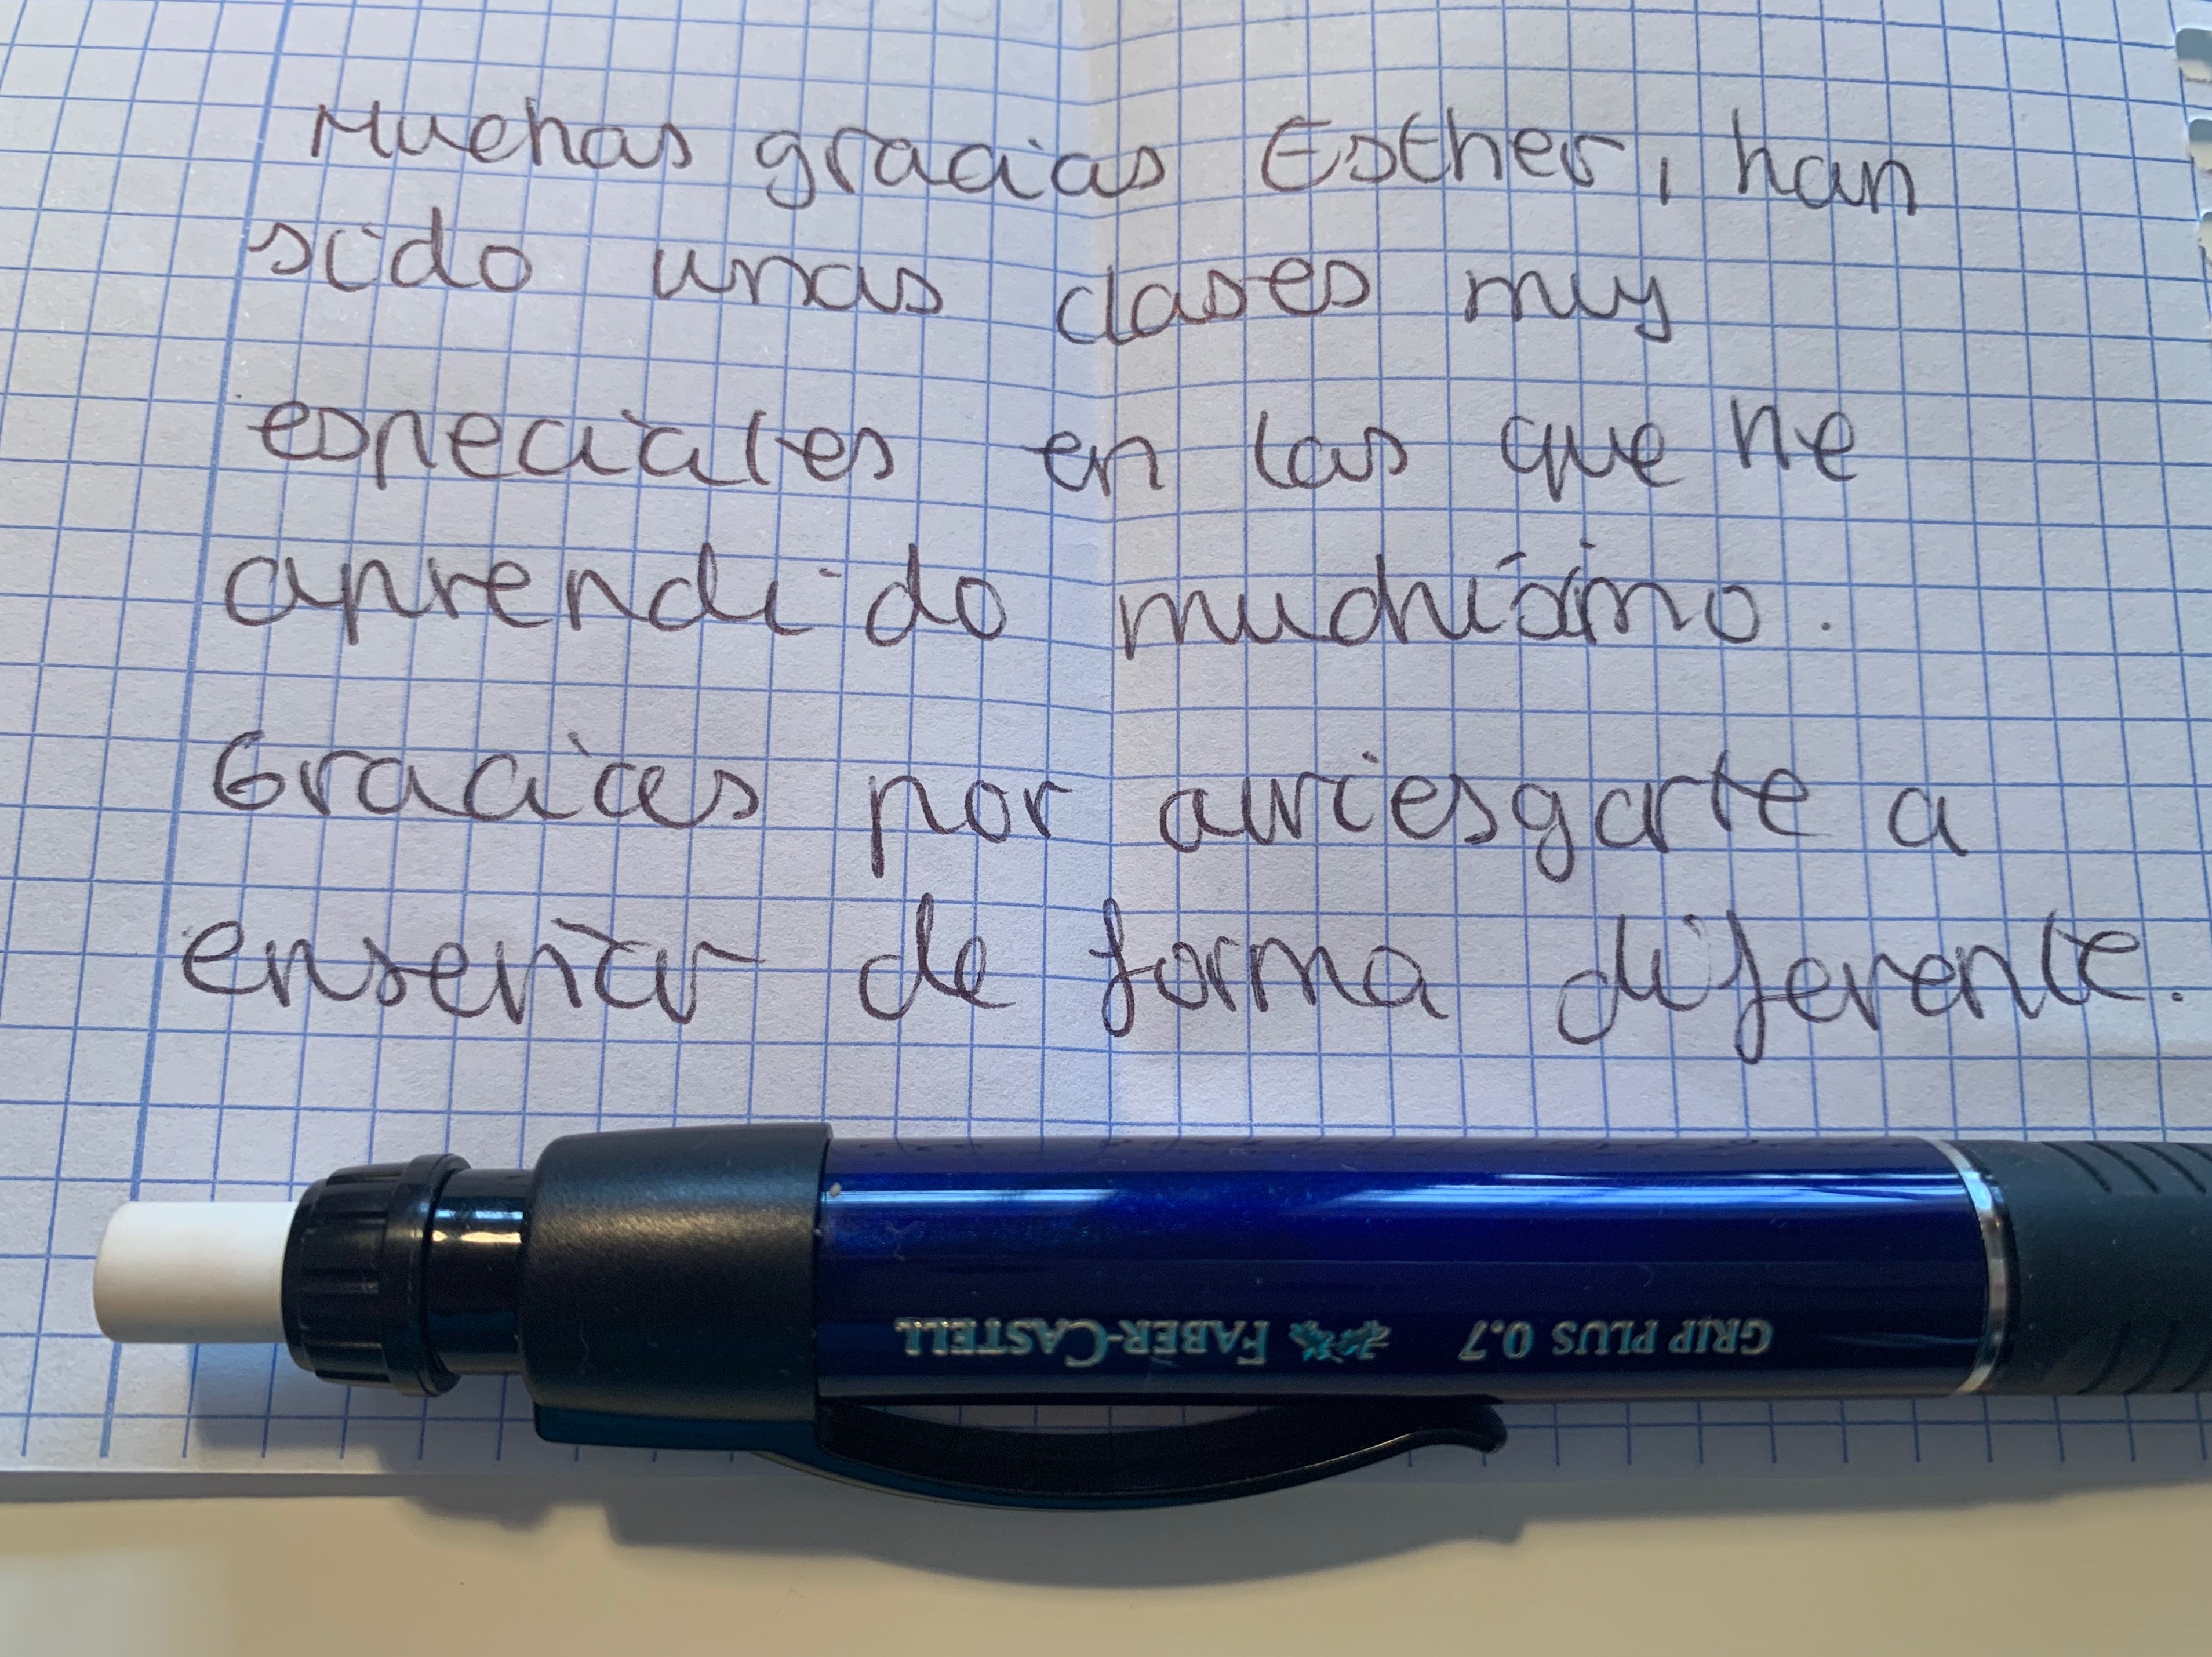 Muchas gracias Esther, han
sido unas clases muy
especiales en las que he
aprendido muchísimo.
Gracias por arriesgarte a
enseñar de forma diferente.
GRIP PLUS 0.7 FABER-CASTELL